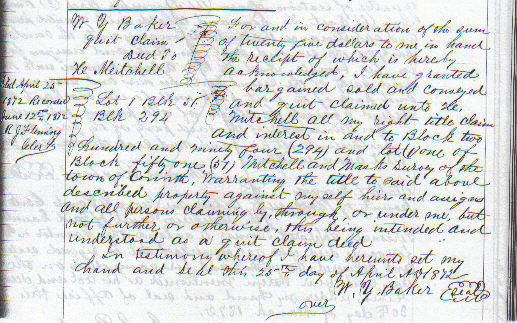 W. Y. Baker
quit Claim
Deed To
H. Mitchell
Filed April 25
1872 Recorded
June 12th 1872
R. J. Fleming
Clerk
Lot 1 Blk 51
Blk 294
For and in consideration of the sum
of twenty five dollars to me in hand
the receipt of which is hereby
acknowledged, I have granted
bargained sold and conveyed
and quit claimed unto H.
Mitchell all my right title claim
and interest in and to Block two
hundred and ninty four (294) and lot (1) one of
Block fifty one (51) Mitchell and Masks survey of the
town of Corinth, Warranting the title to said above
described property against myself heirs and assigns
and all persons claiming by, through, or under me, but
not further or otherwise, this being intended and
understood as a quit claim deed
In Testimony whereof I have hereunto set my
hand and seal this 25th day of April AD 1872
W. Y. Baker (seal)
over